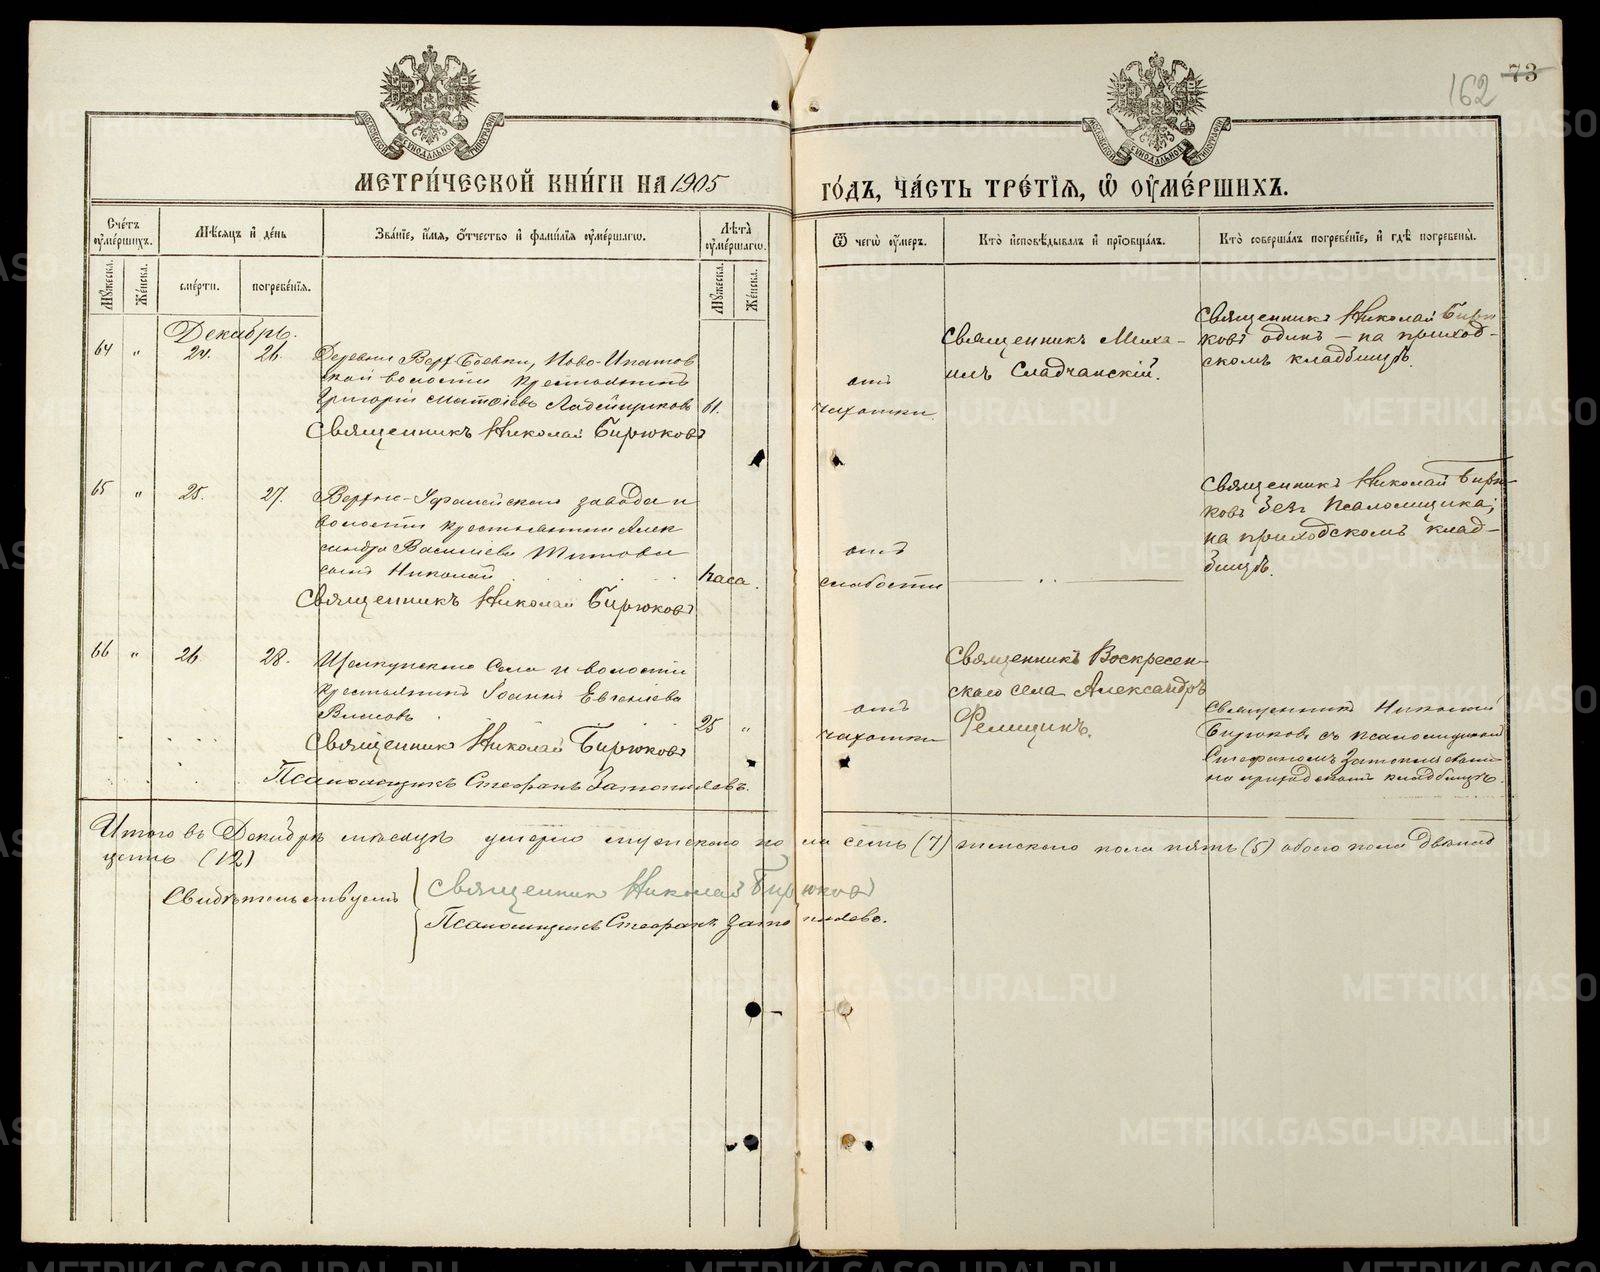 162 73
МОСКОВСКОЙ СѴНОДАЛЬНОЙ ТИПОГРАФІИ
МОСКОВСКОЙ СѴНОДАЛЬНОЙ ТИПОГРАФІИ
МЕТРИ́ЧЕСКОЙ КНИ́ГИ НА 1905
ГО́ДЪ, ЧА́СТЬ ТРЕ́ТЇѦ, Ѡ҆ ОУ҆МЕ́РШИХЪ.
Сче́тъ оу҆ме́ршихъ.
Мꙋ́жеска.
Же́нска.
Мѣ́сѧцъ и҆ де́нь
сме́рти.
погребе́нїѧ.
Зва́нїе, и҆́мѧ, ѻ҆́тчество и҆ фами́лїѧ оу҆ме́ршагѡ.
Лѣ́та оу҆ме́ршагѡ.
Мꙋ́жеска.
Же́нска.
Ѿ чегѡ̀ оу҆́меръ.
Кто̀ и҆сповѣ́дывалъ и҆ прїѡбща́лъ.
Кто̀ соверша́лъ погребе́нїе, и҆ гдѣ̀ погребены̀.
Декабрь.
64 " 24. 26.
Деревни Верх-Боевки, Ново-Ипатов
ской волости крестьянинъ
Григорий Матѳіевъ Лабейщиковъ 61.
Священникъ Николай Бирюковъ
отъ
чахотки
Священникъ Миха-
илъ Сладчанскій.
Священникъ Николай Бирю
ковъ одинъ – на приход-
скомъ кладбищѣ.
65 " 25. 27.
Верхне-Уфалейскаго завода и
волости крестьянина Алек
сандра Василіева Титова
сынъ Николай часа.
Священникъ Николай Бирюковъ
отъ
слабости
Священникъ Николай Бирю-
ковъ безъ псаломщика;
на приходскомъ клад-
бищѣ.
66 " 26 28.
Щелкунскаго села и волости
крестьянинъ Іоаннъ Евгеніевъ
25 "
Священник Николай Бирюковъ
Псаломщикъ Стефанъ Затопляевъ.
отъ
чахотки
Священникъ Воскресен-
скаго села Александръ
Священникъ Николай
Бирюковъ съ псаломщикомъ
Стефаномъ Затопляевымъ
на приходскомъ кладбищѣ.
Итого въ Декабрѣ мѣсяцѣ умерло мужского пола семь (7) женскаго пола пять (5) обоего пола двѣнад
цать (12)
Свидѣтельствуемъ
Священник Николай Бирюковъ
Псаломщикъ Стефанъ Затопляевъ.
METRIKI.GASO-URAL.RU